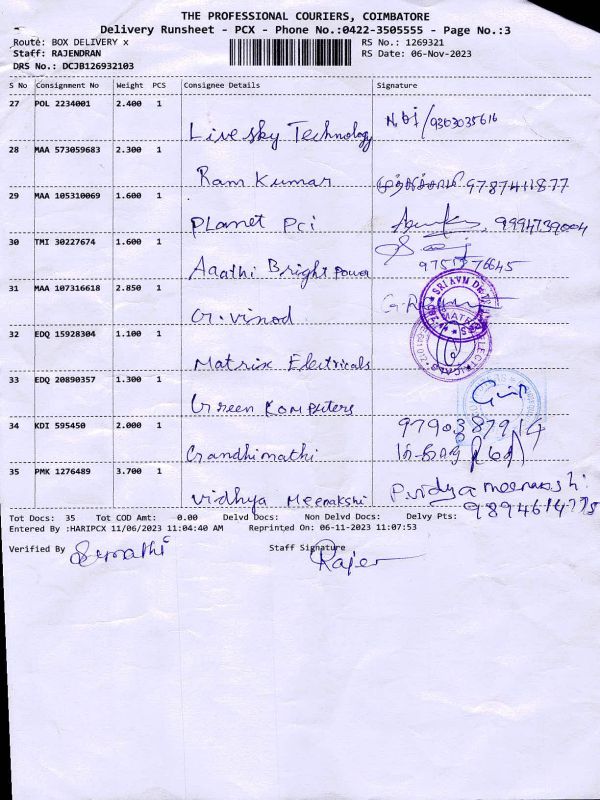 THE PROFESSIONAL COURIERS, COIMBATORE
Delivery Runsheet - PCX - Phone No.:0422-3505555 - Page No.:3
Route: BOX DELIVERY x
RS No.: 1269321
Staff: RAJENDRAN
RS Date: 06-Nov-2023
DRS No.: DCJB126932103
S No Consignment No Weight PCS Consignee Details Signature
27 POL 2234001 2.400 1
Live sky Technology 9303035616
28 MAA 573059683 2.300 1
Ram Kumar 9787411877
29 MAA 105310069 1.600 1
Planet Pci 9994739004
30 TMI 30227674 1.600 1
Aaathi Bright Power
31 MAA 107316618 2.850 1
Gr. vinod
32 EDQ 15928304 1.100 1
Matrix Electricals
33 EDQ 20890357 1.300 1
Green Komputers
34 KDI 595450 2.000 1
9790387914
Gandhimathi
35 PMK 1276489 3.700 1
Vidhya Meenakshi P.vidya meenakshi
Tot Docs: 35 Tot COD Amt: 0.00 Delvd Docs: Non Delvd Docs: Delvy Pts:
9894614775
Entered By :HARIPCX 11/06/2023 11:04:40 AM Reprinted On: 06-11-2023 11:07:53
Verified By Sumathi Staff Signature Rajen